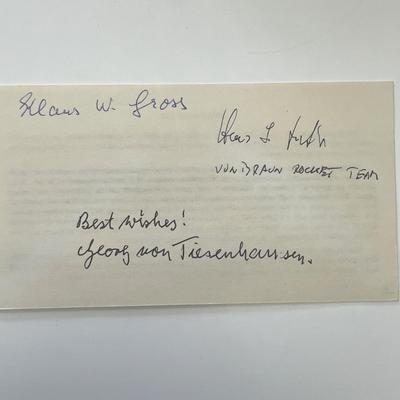 Klaus W. Gross
VON BRAUN ROCKET TEAM
Best wishes!
Georg von Tiesenhausen.